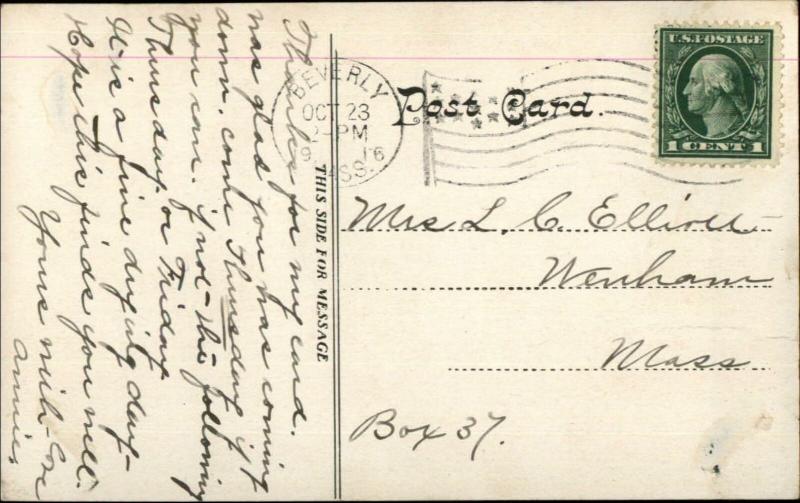 Post Card.
U.S. POSTAGE
1 CENT 1
BEVERLY
OCT 23
PM
MASS.
THIS SIDE FOR MESSAGE
Thanks for my card.
was glad you was coming
down. come Thursday if
you can. if not the following
Thursday or Friday.
It is a fine drying day-
Hope this finds you well.
Yours with love
Annie.
Mrs L. C. Elliott
Wenham
Mass
Box 37.